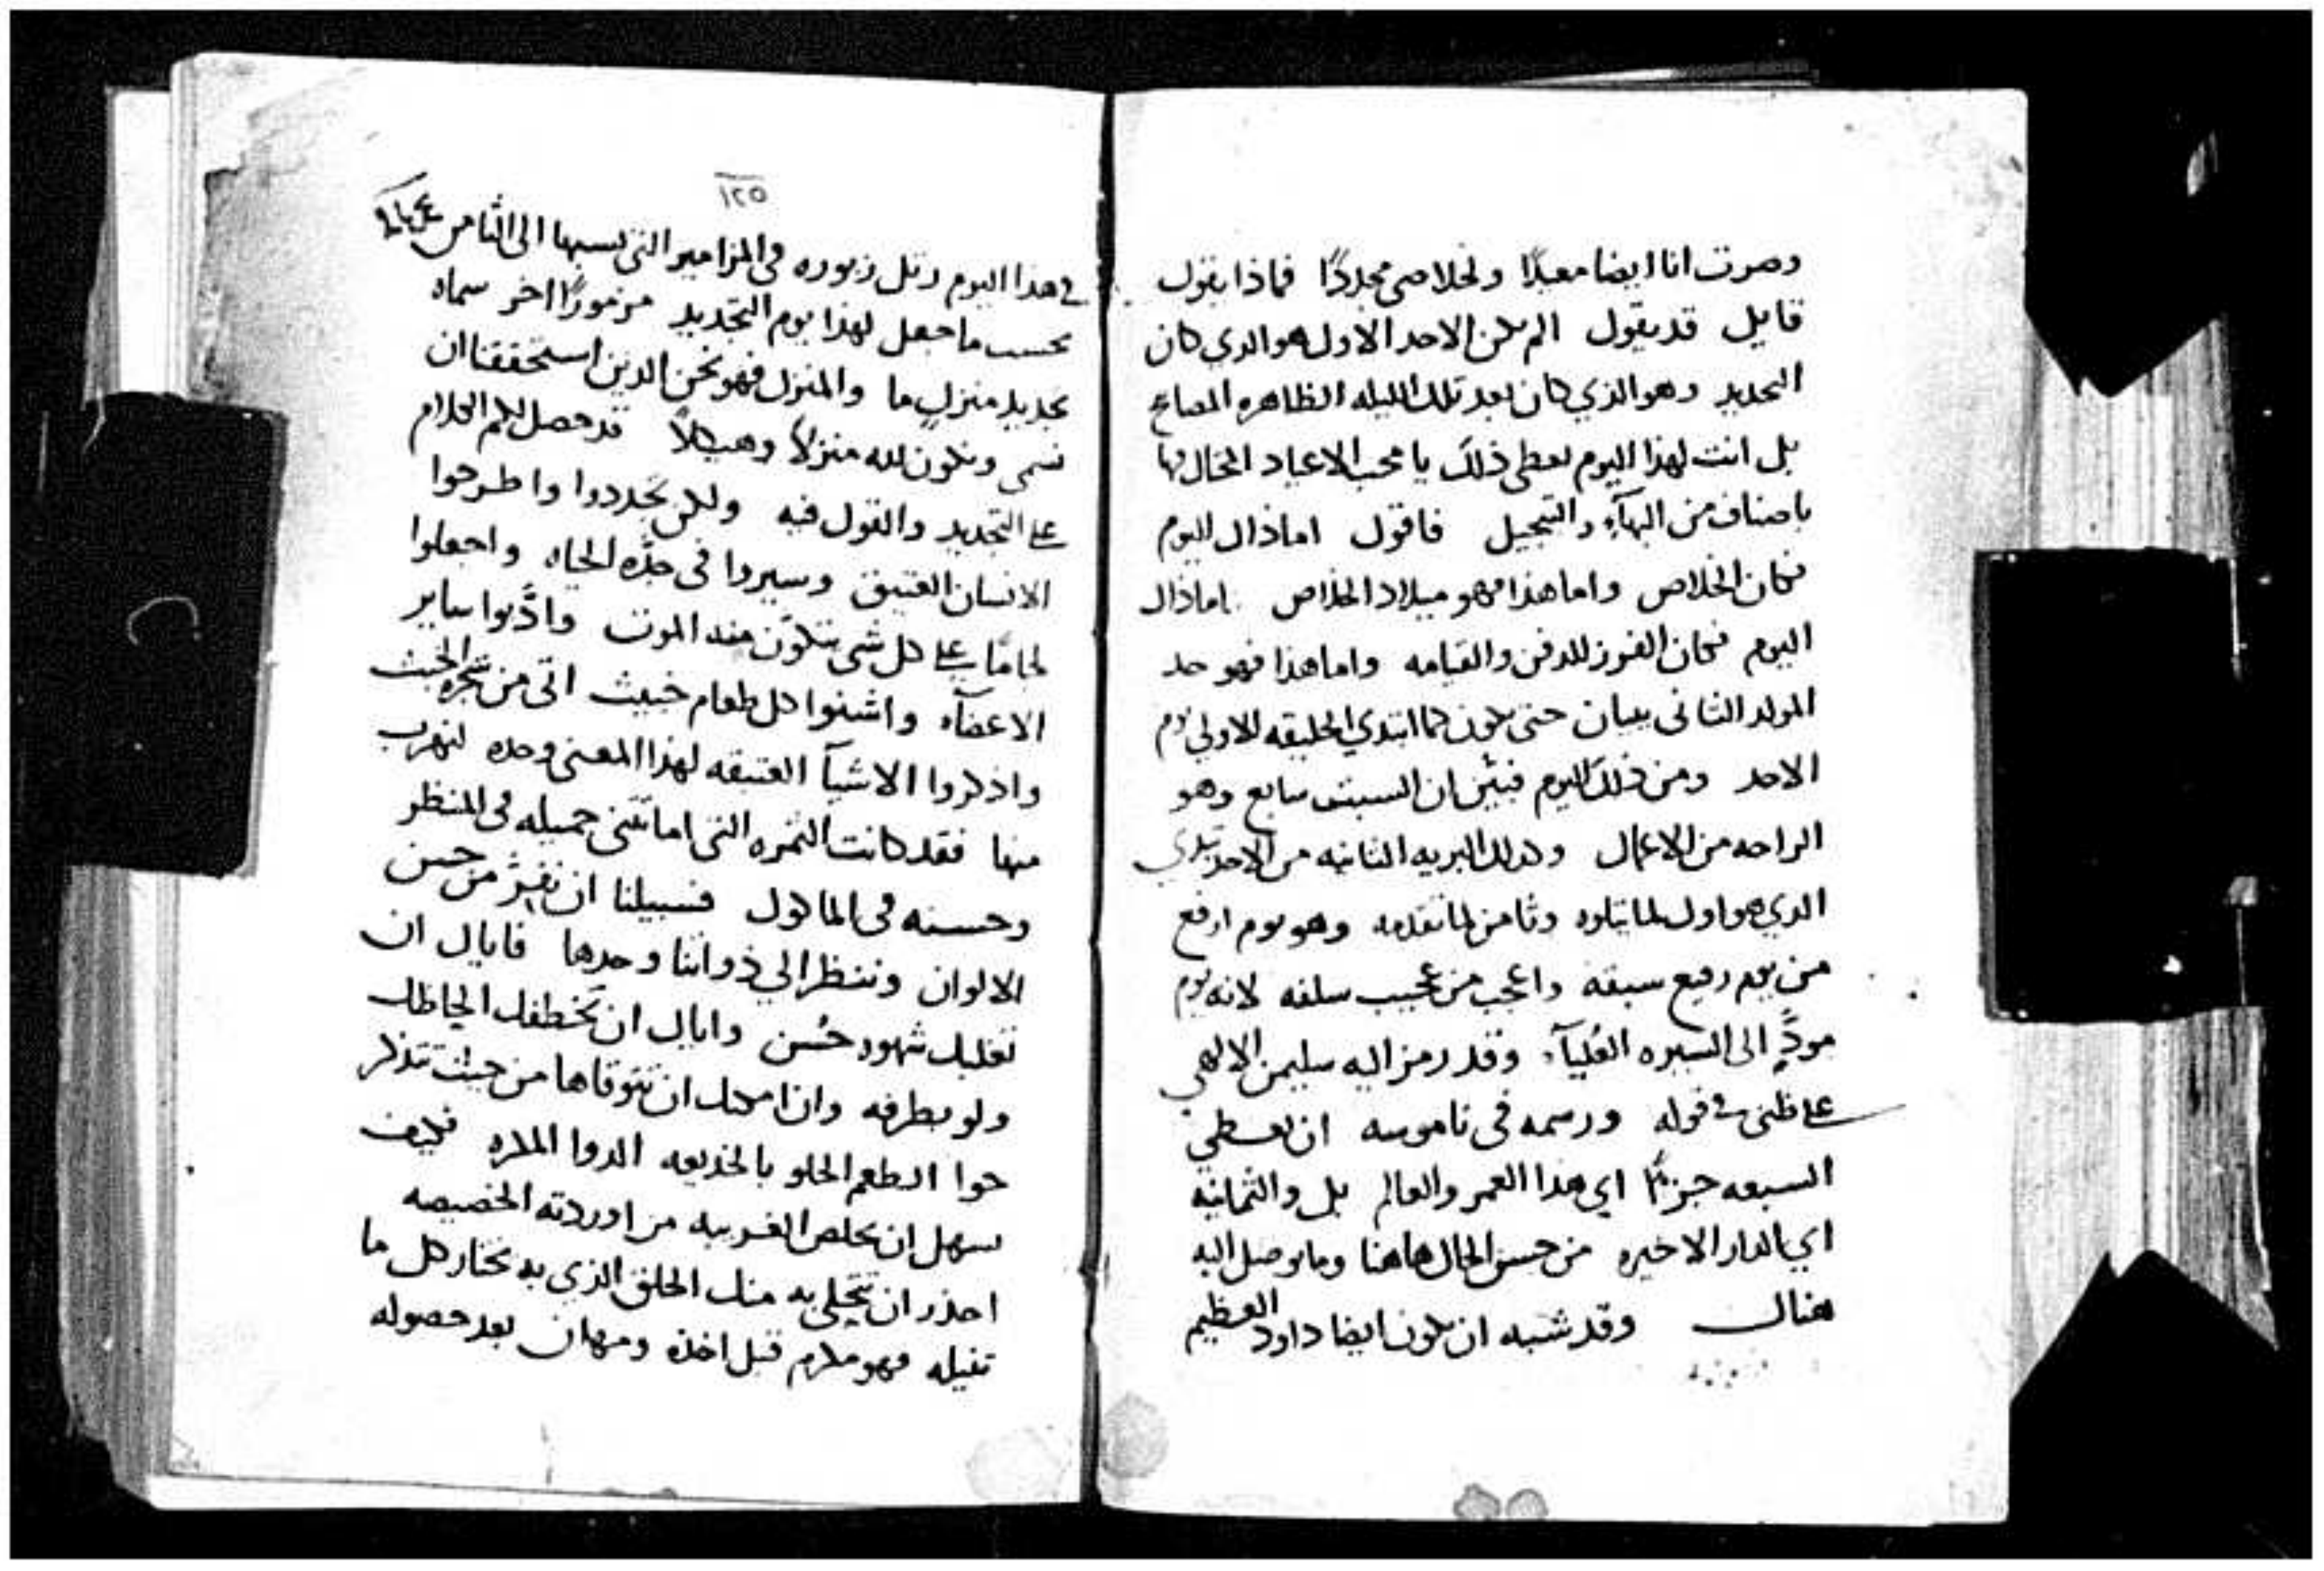 وصرت انا ايضا معيدًا ولخلاصي مجددًا فماذا يقول
قايل قد يقول الم يكن الاحد الاول هو الدي كان
التجديد وهو الذي كان بعد تلك الليله الظاهره المصابح
بل انت لهذا اليوم تعطي ذلك يا محب الاعياد المختال بها
باصناف من البهآء والتبجيل فاقول اما ذاك اليوم
فكان الخلاص واما هذا فهو ميلاد الخلاص اما ذاك
اليوم فكان الفرز للدفن والقيامه واما هذا فهو حد
المولد الثاني ببيان حتى يكون كما ابتدي الخليقه الاولى يوم
الاحد ومن ذلك اليوم فبيّن ان السبت سابع وهو
الراحه من الاعمال وكدلك البريه الثانيه من الاحد تبتدي
الدي هو اول لما يتلوه وثامن لما تقدمه وهو يوم ارفع
من يوم رفيع سبقه واعجب من عجيب سلفه لانه يوم
مودٍّ الى السيره العُليآء وقد رمز اليه سليمن الالهي
على ظني في قوله ورسمه في ناموسه ان نعطي
السبعه جزءًا اي هدا العمر والعالم بل والثمانيه
اي الدار الاخيره من حسن الحال هاهنا وما يوصل اليه
هناك وقد شبه ان يكون ايضا داود العظيم
١٢٥
في هذا اليوم رتل زبوره في المزامير التي نسبها الى الثامن
بحسب ما جعل لهذا يوم التجديد مزمورًا اخر سماه
تجديد منزلٍ ما والمنزل فهو نحن الدين استحققنا ان
نسمى ونكون لله منزلًا وهيكلًا قد حصل لكم الكلام
على التجديد والقول فيه ولكن تجددوا واطرحوا
الانسان العتيق وسيروا في جدّه الحياه واجعلوا
لجامًا على كل شي يتكوّن منه الموت وادّبوا ساير
الاعضآء واشنوا كل طعام خبيث اتى من شجره الخبث
واذكروا الاشيآ العتيقه لهذا المعنى وحده لنهرب
منها فقد كانت الثمره التي اماتتني جميله في المنظر
وحسنه في الماكول فسبيلنا ان نفرّ من حسن
الالوان وننظر الي ذواتنا وحدها فاياك ان
تغلبك شهوه حُسن واياك ان تختطفك الحاظك
ولو بطرفه وان امكنك ان تتوقاها من حيث تتذكر
حوا الطعم الحلو بالخديعه الدوا المكره فكيف
يسهل ان يخلص الغريبه من اوردته الخصيصه
احذر ان تتحلى به منك الحلق الذي به تختار كل ما
تنيله فهو مكرم قبل اخذه ومهان بعد حصوله